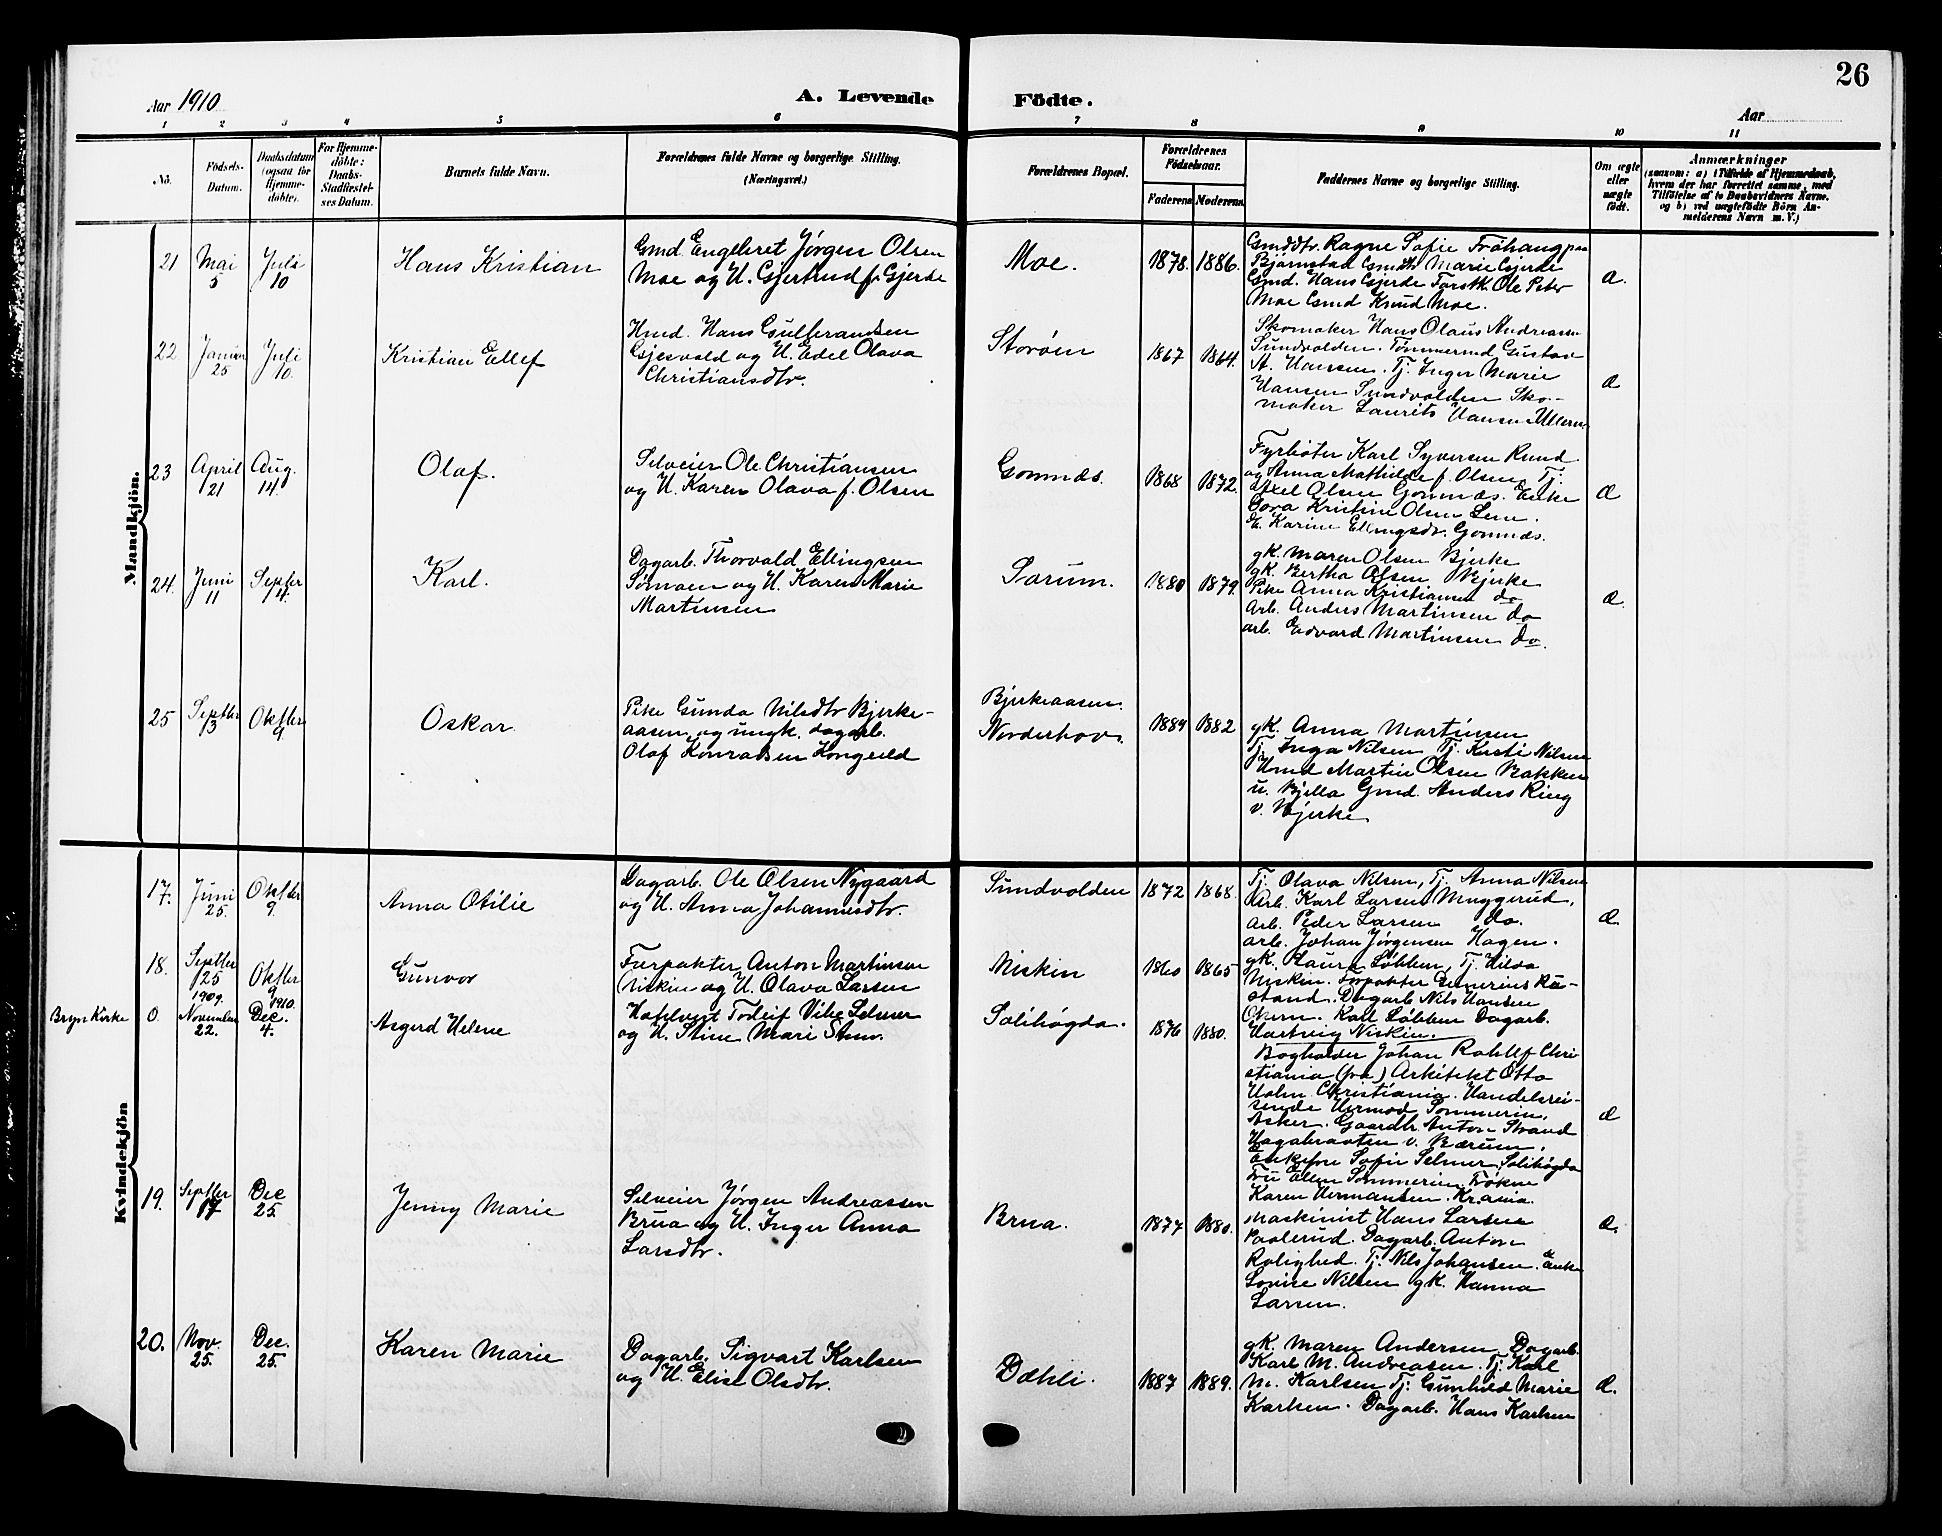 26
Aar 1910
A. Levende
Födte.
Aar
1 2 3 4 5 6 7 8 9 10 11
No.
Födsels-
Datum.
Daabsdatum
(ogsaa for
Hjemme-
döbte).
For Hjemme-
döbte:
Daabs-
Stadfæstel-
ses Datum.
Barnets fulde Navn.
Forældrenes fulde Navne og borgerlige Stilling.
(Næringsvei.)
Forældrenes Bopæl.
Forældrenes
Födselsaar.
Faderens
Moderens
Faddernes Navne og borgerlige Stilling.
Om ægte
eller
uægte
födt.
Anmærkninger
(saasom: a) i Tilfælde af Hjemmedaab,
hvem der har forrettet samme, med
Tilföielse af to Daabsvidners Navne.
og b) ved uægtefödte Börn An-
melderens Navn m. V.)
Mandkjön.
21
Mai
5
Juli
10
Hans Kristian
Gmd. Engebret Jørgen Olsen
Moe og H. Gjertrud f. Gjerde
Moe.
1878.
1886.
Gmddtr. Ragne Sofie Frøhaug paa
Bjørnstad Gmdtr Marie Gjerde
Gmd. Hans Gjerde Forstk. Ole Peter
Moe Gmd Knud Moe.
Æ.
22
Januar
25
Juli
10.
Kristian Ellef
Hmd. Hans Gulbrandsen
Gjesvold og H. Edel Olava
Christiansdtr.
Storøen
1867
1864.
Skomaker Hans Olaus Andreassen
Sundvolden. Tømmermd Gustav
A. Hansen. Tj. Inger Marie
Hansen Sundvolden Sko-
maker Laurits Hansen Ullern
Æ
23
April
21
Aug.
14.
Olaf.
Selveier Ole Christiansen
og H. Karen Olava f. Olsen
Gomnæs.
1868
1872.
Fyrbøter Karl Syversen Rund
og Anna Mathilde f. Olsen, Tj.
Axel Olsen Gomnæs. Enke
Dora Kristine Olsen Sem.
E. Karine Ellingsdr. Gomnæs.
Æ
24.
Juni
11
Septber
4.
Karl.
Dagarb. Thorvald Ellingsen
Sørnoen og H. Karen Marie
Martinsen
Sørum.
1880
1879.
gk. Maren Olsen Bjerke
gk. Bertha Olsen Bjerke
Pike Anna Kristiansen do
Arb. Anders Martinsen do
arb. Edvard Martinsen do.
Æ.
25
Septber
3
Oktber
9.
Oskar
Pike Gunda Nilsdtr Bjerke-
aasen og ungk. dagarb.
Olaf Konradsen Kongeld
Bjerkeaasen
Norderhov.
1884
1882
gk. Anna Martinsen
Tj. Inga Nilsen Tj. Kirsti Nilsen
Hmd Martin Olsen Bakken
u. Bjella Gmd. Anders Ring
v. Bjerke
Kvindekjön
17.
Juni
25.
Oktber
9.
Anna Otilie
Dagarb. Ole Olsen Nygaard
og H. Anna Johannesdtr.
Sundvolden
1872
1868.
Tj. Olava Nilsen, Tj. Anna Nilsen
Arb. Karl Larsen Muggerud,
arb. Peder Larsen do.
arb. Johan Jørgensen Hagen.
Æ.
18.
Septber
25
Oktber
9
Gunvor
Forpakter Anton Martinsen
Niskin og H. Olava Larsen
Niskin
1860
1865
gk. Laura Løbben, Tj. Hilda
Niskin. Forpakter Demerius Rø-
stand. Dagarb Nils Hansen
Karl Løbben Dagarb.
Hartvig Niskin.
Bryn Kirke
0.
1909.
November
22.
1910.
Dec.
4.
Asgerd Helene
og H. Stine Mari
Solihøgda.
1876
1880.
Bogholder Johan Rohlff Chri-
stiania (fra) Arkitekt Otto
Holm Christiania. Handelsrei-
sende Hermod Sommerin,
Asker. Gaardbr. Anton Strand
v. Bærum.
Enkefru Sofie Selmer Solihøgda
Fru Ellen Sommerin. Frøken
Karen Hermansen. Kr.ania.
Æ
19.
Septber
Dec
25.
Jenny Marie
Selveier Jørgen Andreassen
Brua og H. Inger Anna
Larsdtr.
Brua.
1877
1880.
Maskinist Hans Larsen
Poolerud. Dagarb. Anton
Rolighed. Tj. Nils Johansen. Enke
Lovise Nilsen gk. Hanna
Larsen.
Æ.
20.
Nov.
25.
Dec.
25.
Karen Marie
Dagarb. Sigvart Karlsen
og H. Elise Olsdtr.
Dæhli.
1887
1889.
gk. Maren Andersen Dagarb.
Karl M. Andreasen. Tj. Karl
M. Karlsen Tj. Gunhild Marie
Karlsen. Dagarb. Hans Karlsen
Æ.